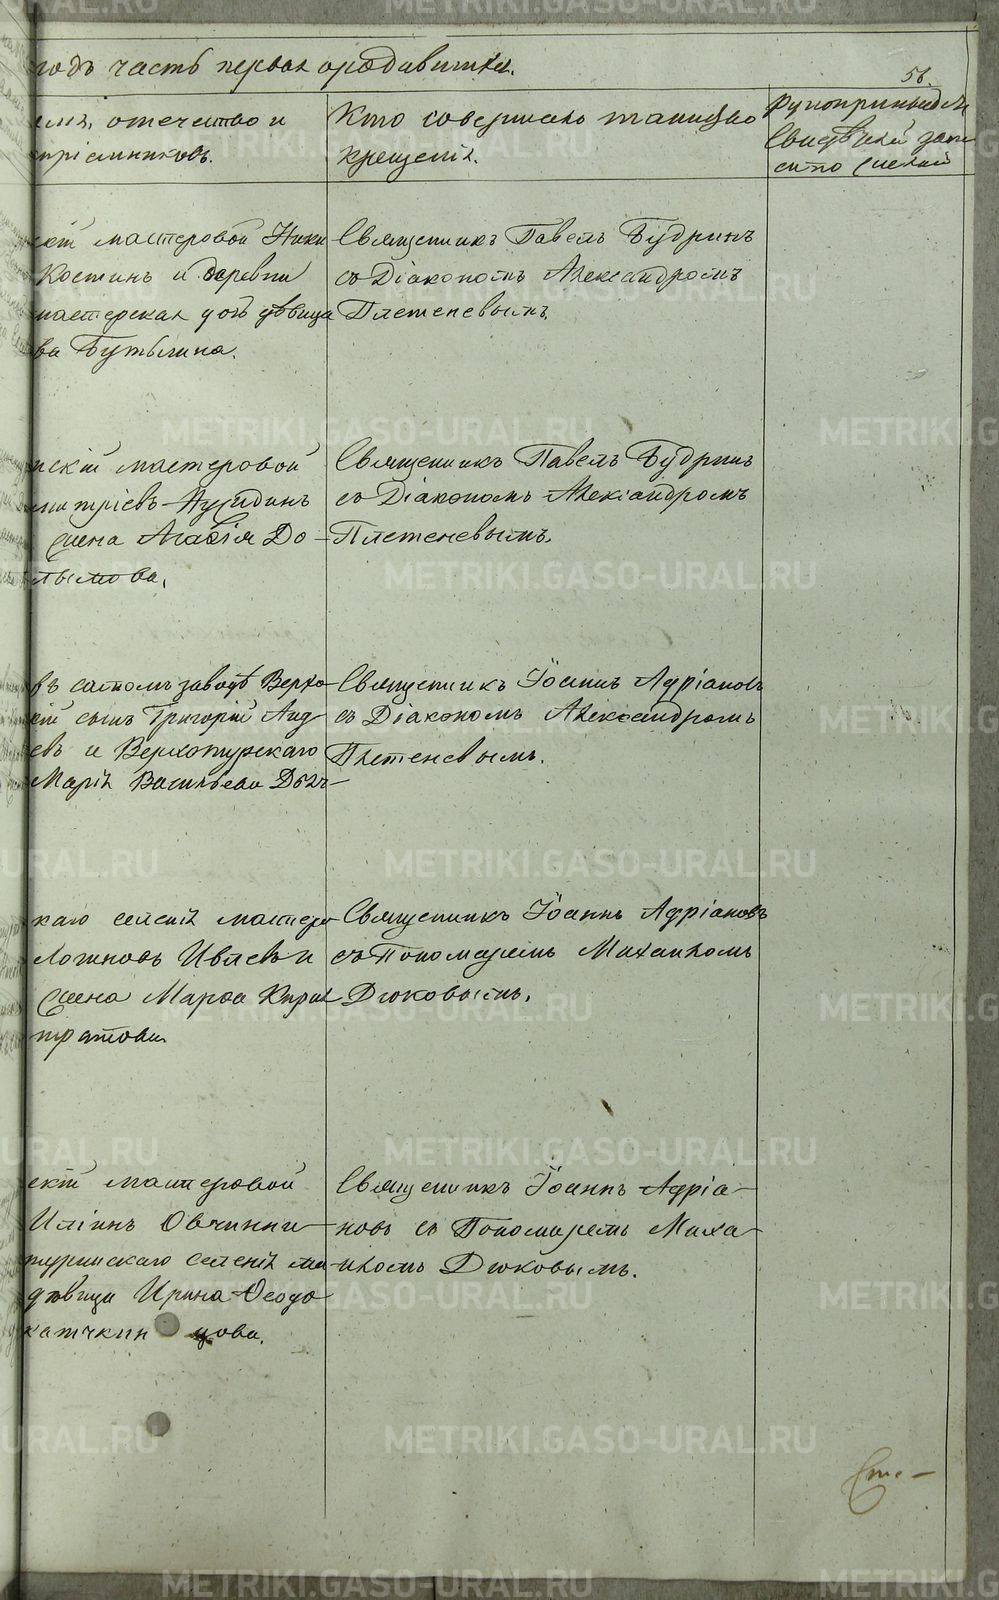 годъ часть первая о родившихся.
56.
имя, отечество и
пріемниковъ.
Кто совершалъ таинство
крещенія.
Рукоприкладст
свидѣтелей запи
си по желанію
скій мастеровой Ники
Костинъ и деревни
мастерская дочь дѣвица
ва Бутылина.
Священникъ Павелъ Будринъ
съ Діакономъ Александромъ
Плетеневымъ.
нскій мастеровой
митріевъ
жена Агафія До
лымова.
Священникъ Павелъ Будринъ
съ Діакономъ Александромъ
Плетеневымъ.
въ самомъ заводѣ Верхо
кій сынъ Григорій Анд
евъ и Верхотурскаго
Марія Васильева
Священникъ Іоаннъ Адріановъ
съ Діакономъ Александромъ
Плетеневымъ.
каго селенія мастеро
Ивлевъ и
жена Марѳа Кирил
Священникъ Іоаннъ Адріановъ
съ Пономаремъ Михаиломъ
Дюковымъ.
скій мастеровой
Ильинъ Овчинни
туринскаго селенія ма
дѣвица Ирина Ѳеодо
цова.
Священникъ Іоаннъ Адріа-
новъ съ Пономаремъ Миха-
иломъ Дюковымъ.
METRIKI.GASO-URAL.RU